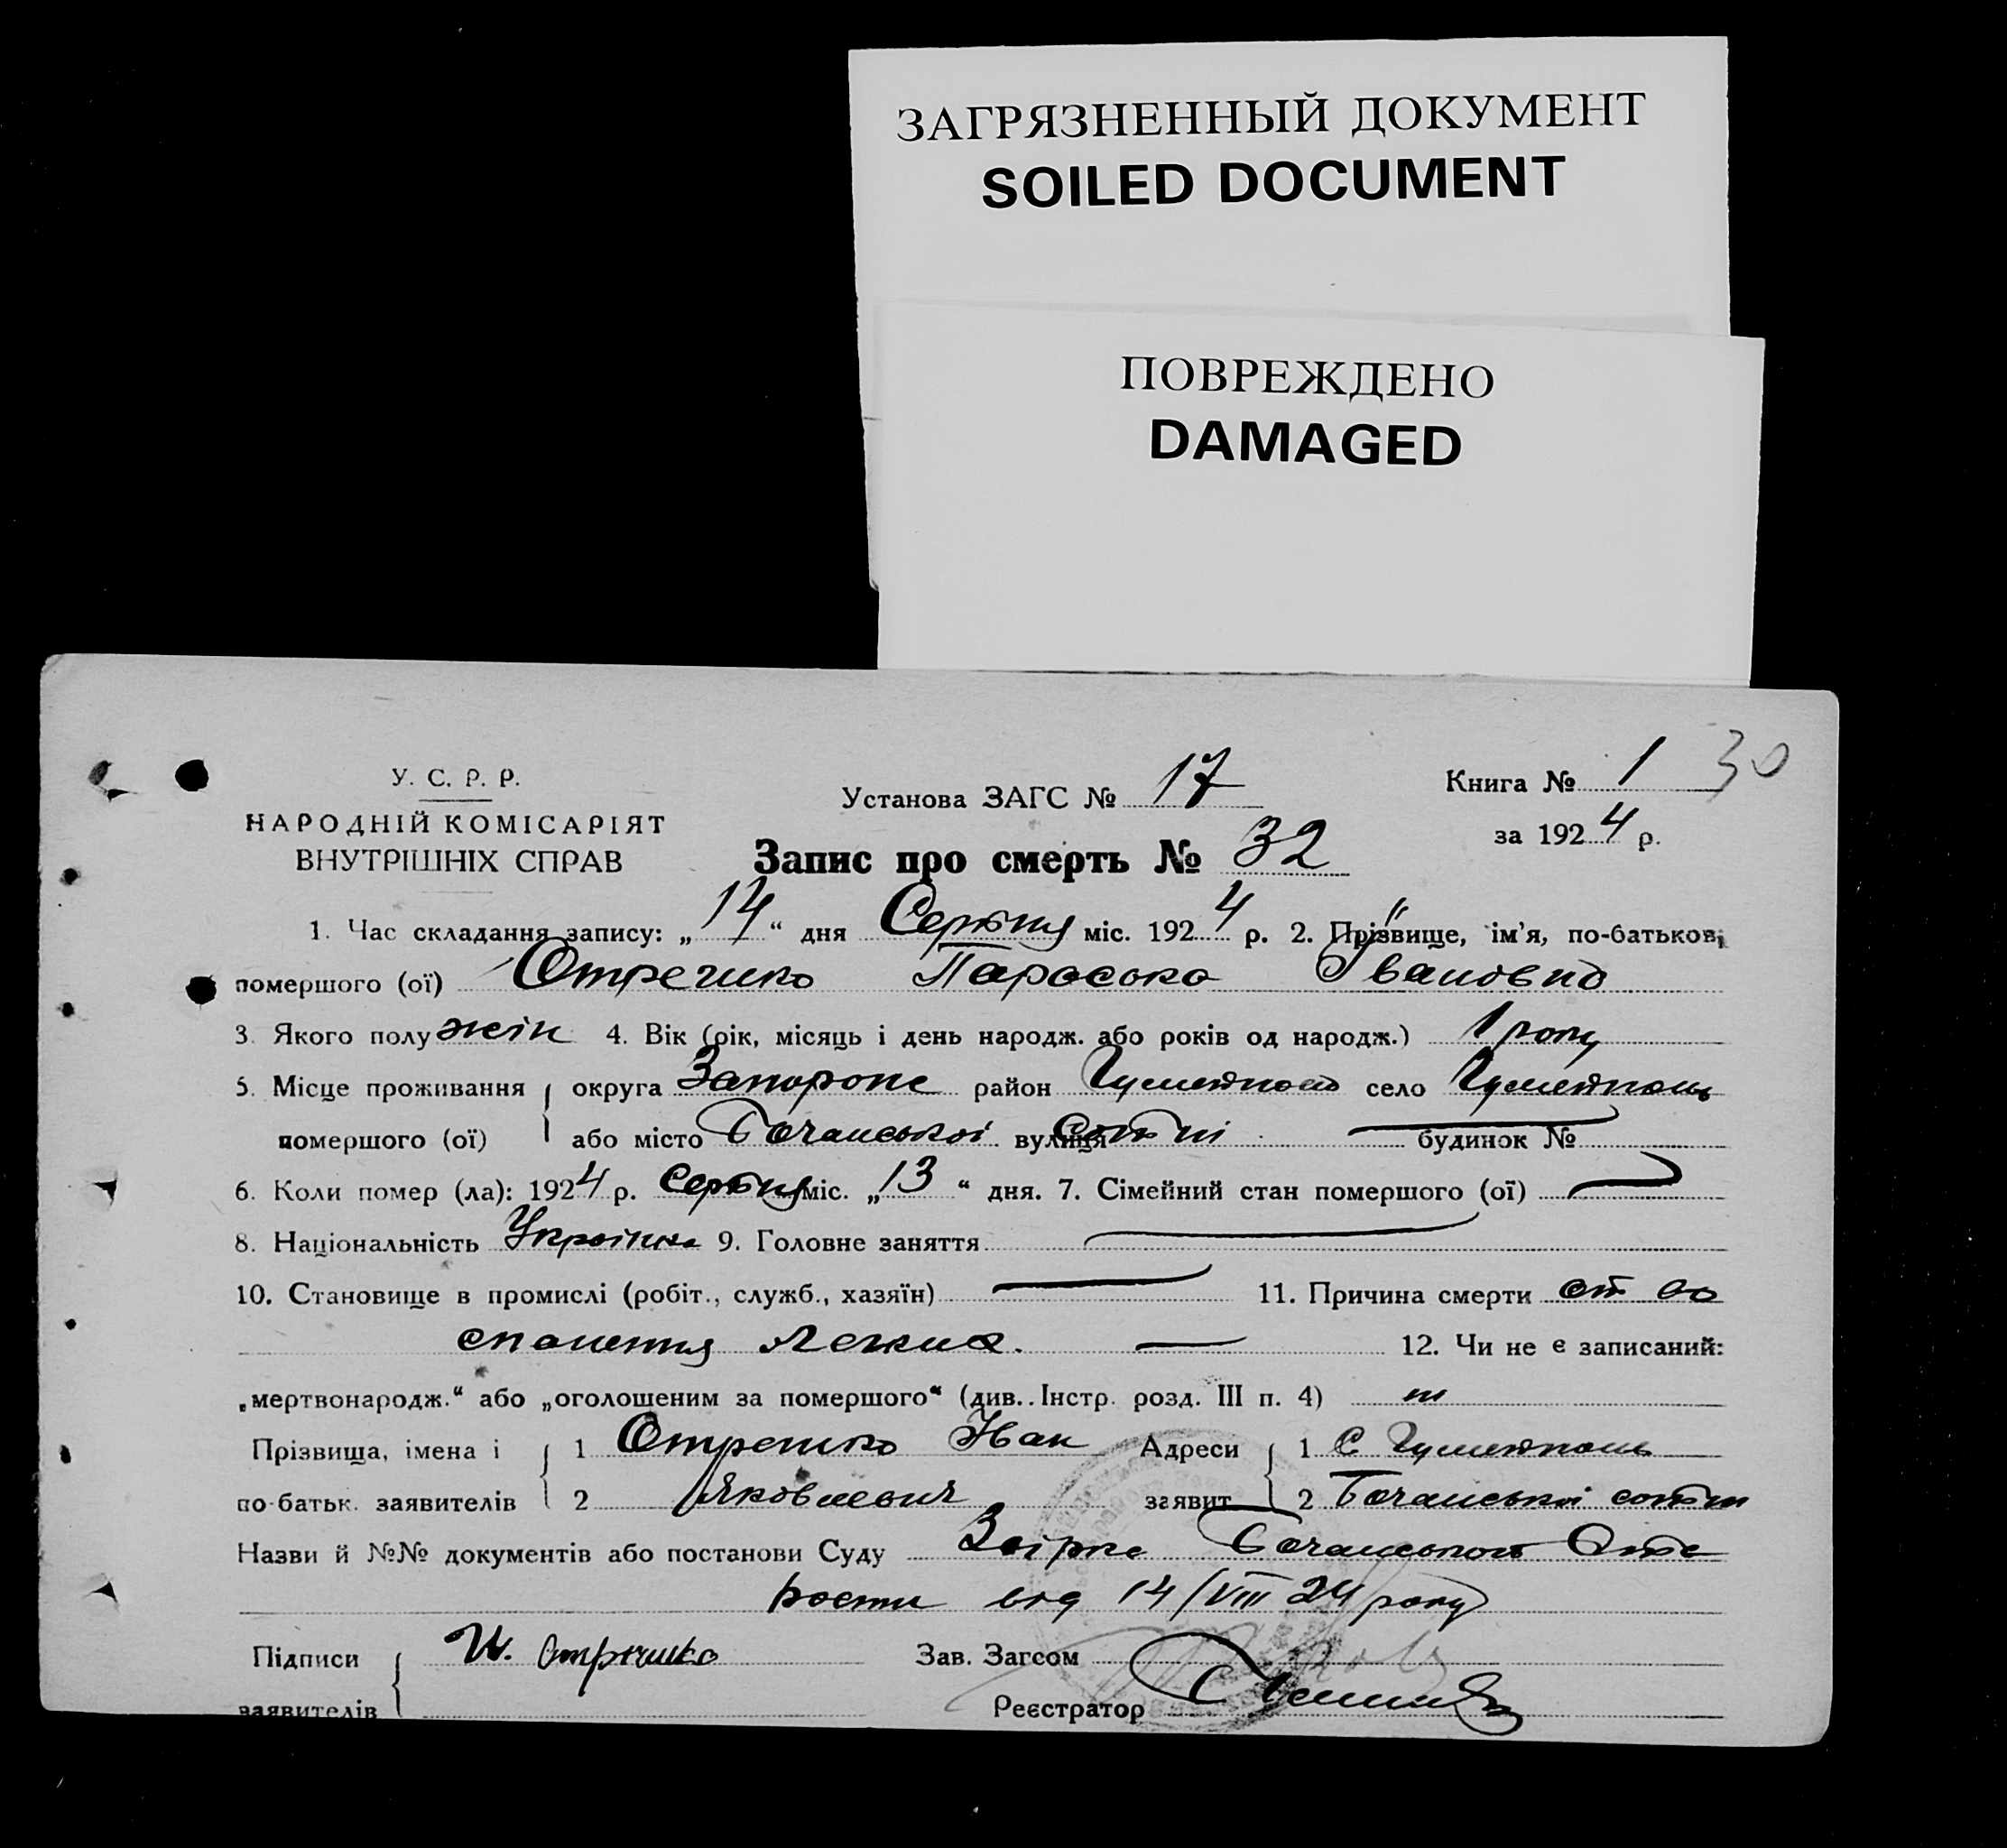 ЗАГРЯЗНЕННЫЙ ДОКУМЕНТ
SOILED DOCUMENT
ПОВРЕЖДЕНО
DAMAGED
У. С. Р. Р. Установа ЗАГС № 17 Книга № 1 30
НАРОДНІЙ КОМІСАРІЯТ за 1924 р.
ВНУТРІШНІХ СПРАВ Запис про смерть № 32
1. Час складання запису: „14“ дня Серпня міс. 1924 р. 2. Прізвище, ім'я, по-батькові
помершого (ої) Отрешко Параська Івановна
3. Якого полу жін 4. Вік (рік, місяць і день народж. або років од народж.) 1 року
5. Місце проживання округа Запорожс район село
помершого (ої) або місто Бочанської вулиця сотні будинок №
6. Коли помер (ла): 1924 р. Серпня міс. „13“ дня. 7. Сімейний стан помершого (ої)
8. Національність Українка 9. Головне заняття
10. Становище в промислі (робіт., служб., хазяїн) 11. Причина смерти от во
спалення легких. 12. Чи не є записаний:
„мертвонародж.“ або „оголошеним за помершого“ (див. Інстр. розд. III п. 4)
Прізвища, імена і 1 Отрешко Іван Адреси 1 С
по-батьк. заявителів 2 Яковлевич заявит 2 Бочанської сотни
Назви й №№ документів або постанови Суду Бочанської
від 14/VIII 24 року
Підписи И. Отрешко Зав. Загсом
заявителів Реєстратор